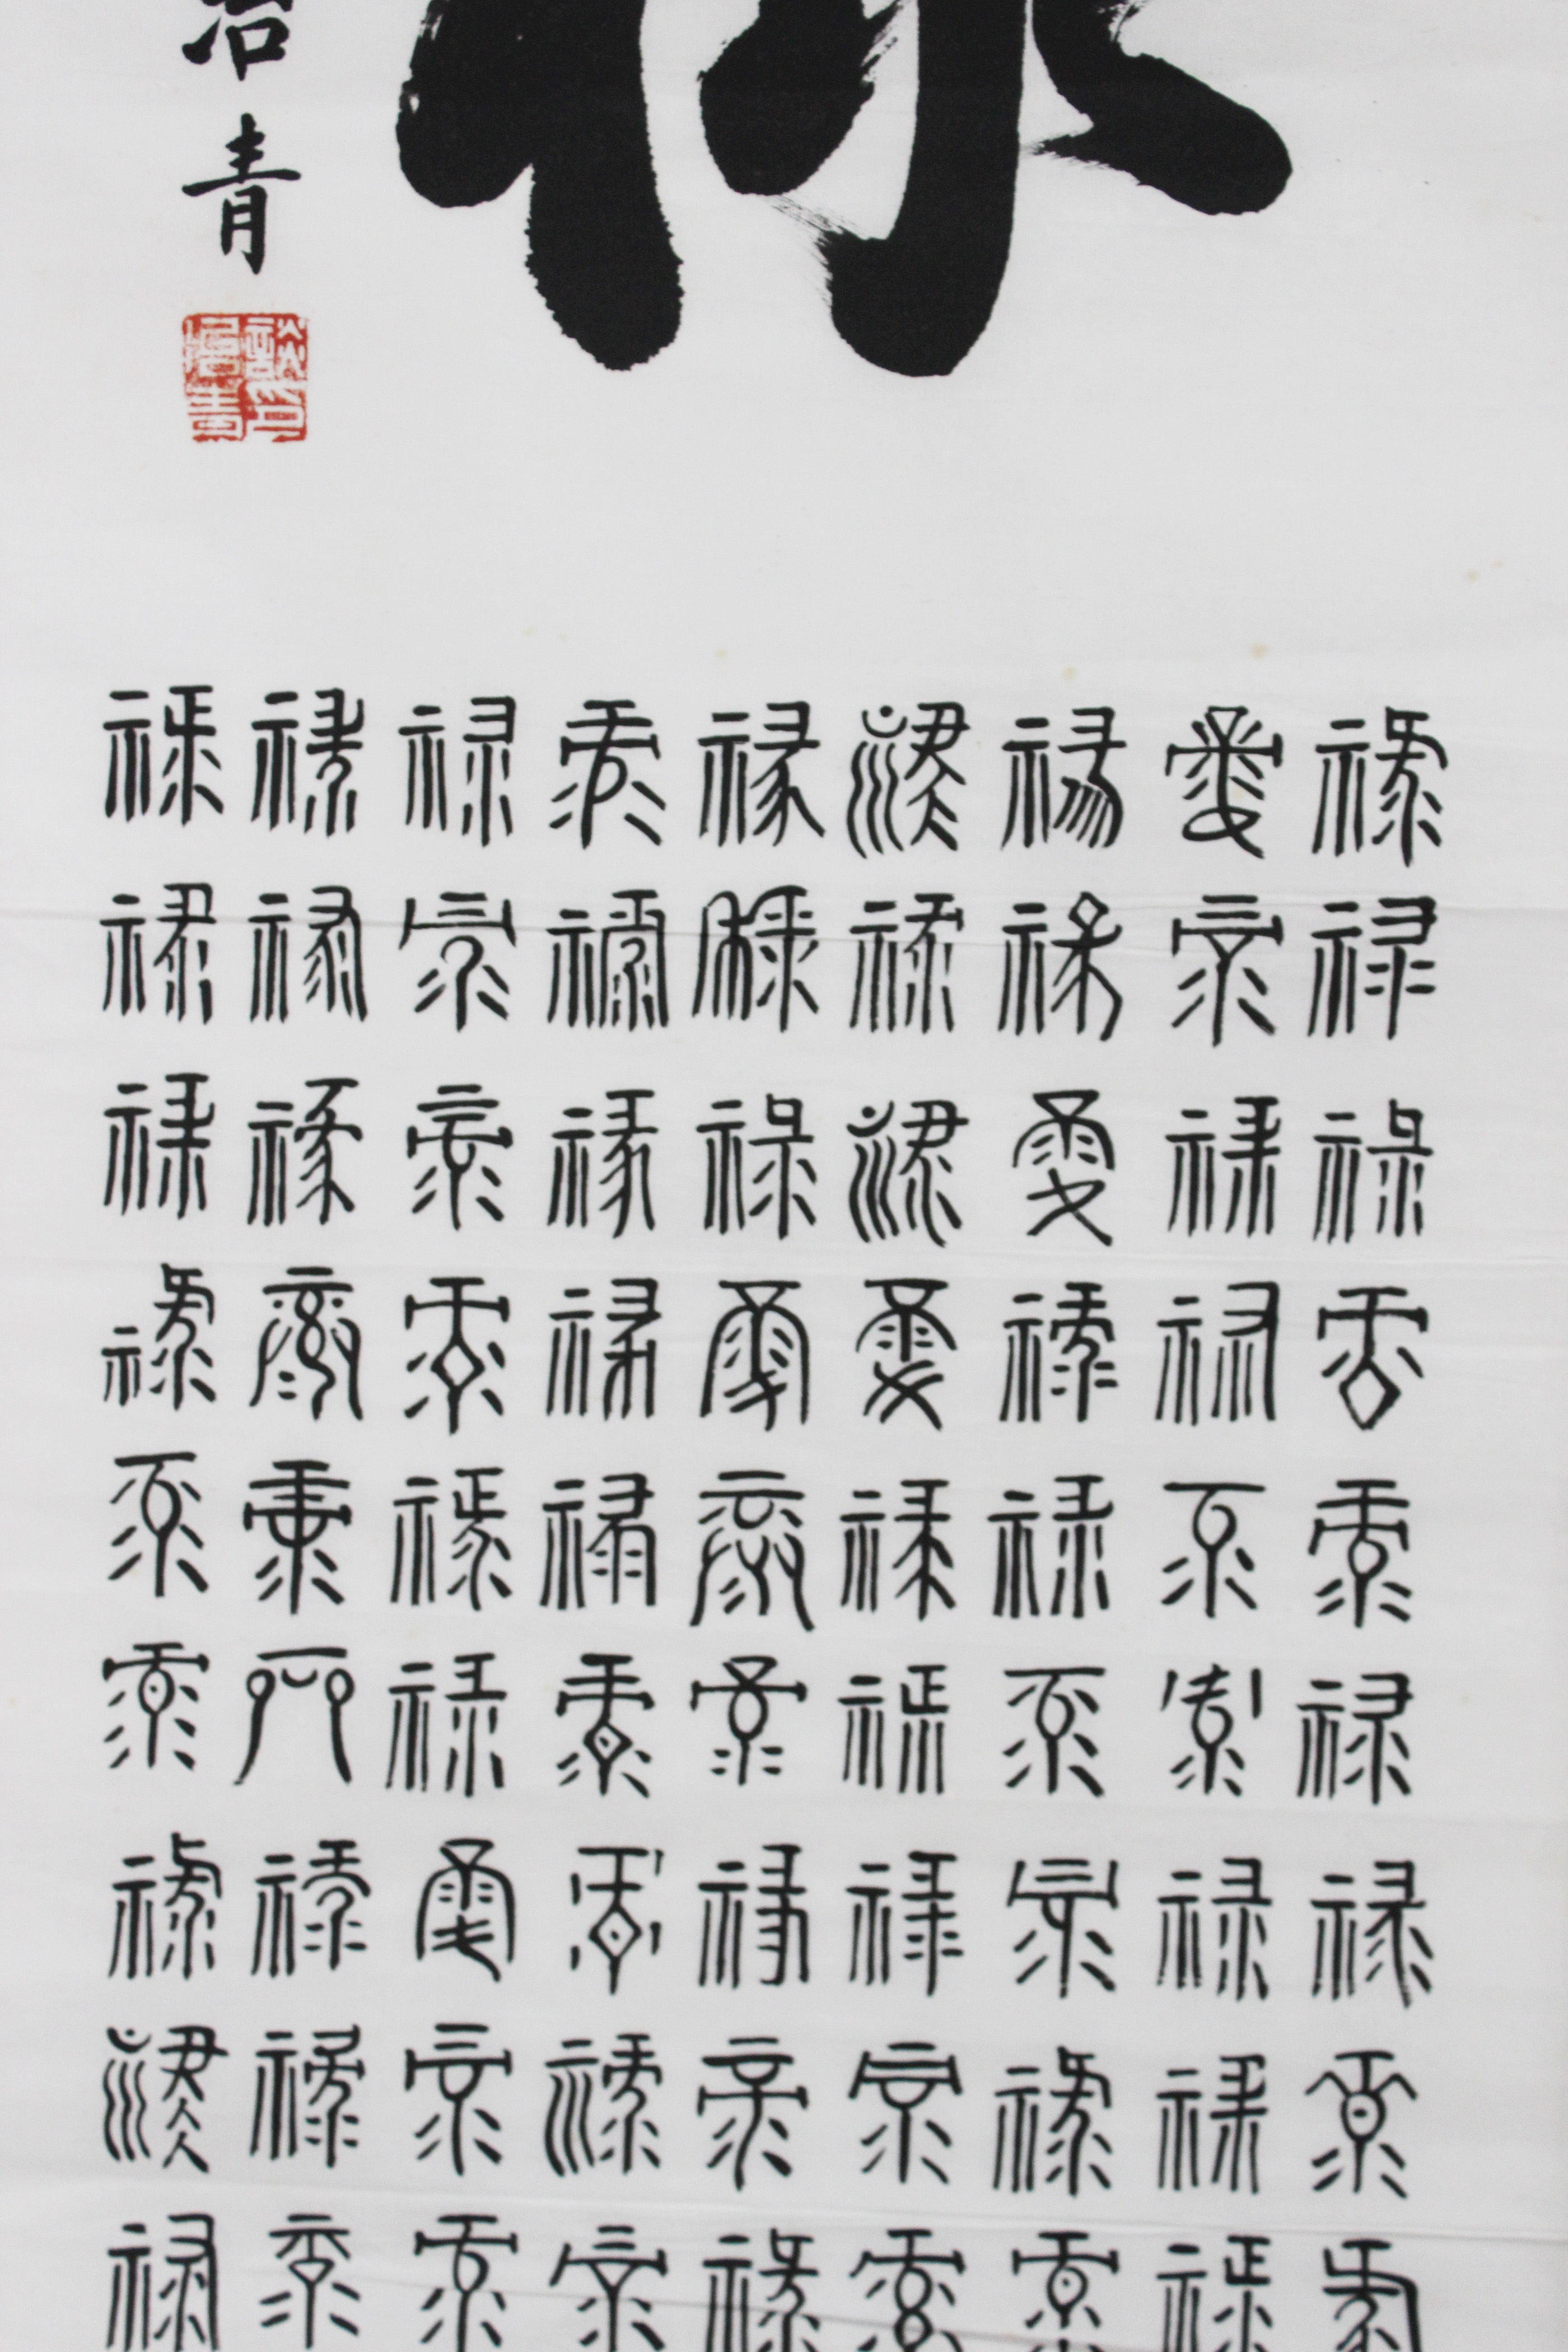 祿
治青
談印治青
祿祿祿祿祿祿祿祿祿
祿祿祿祿祿祿祿祿祿
祿祿祿祿祿祿祿祿祿
祿祿祿祿祿祿祿祿祿
祿祿祿祿祿祿祿祿祿
祿祿祿祿祿祿祿祿祿
祿祿祿祿祿祿祿祿祿
祿祿祿祿祿祿祿祿祿
祿祿祿祿祿祿祿祿祿